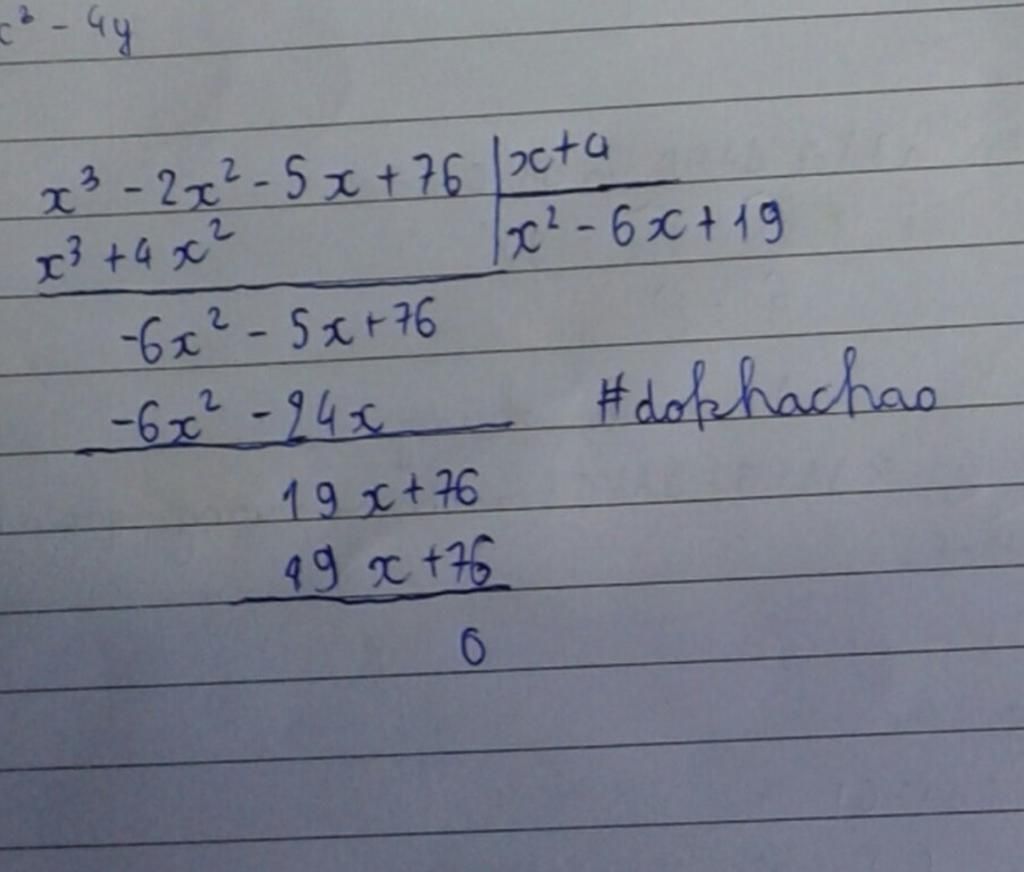 x² - 4y
x³ - 2x² - 5x + 76 | x+4
x³ + 4x² | x² - 6x + 19
-6x² - 5x + 76
-6x² - 24x
#dokhachao
19x + 76
19x + 76
0